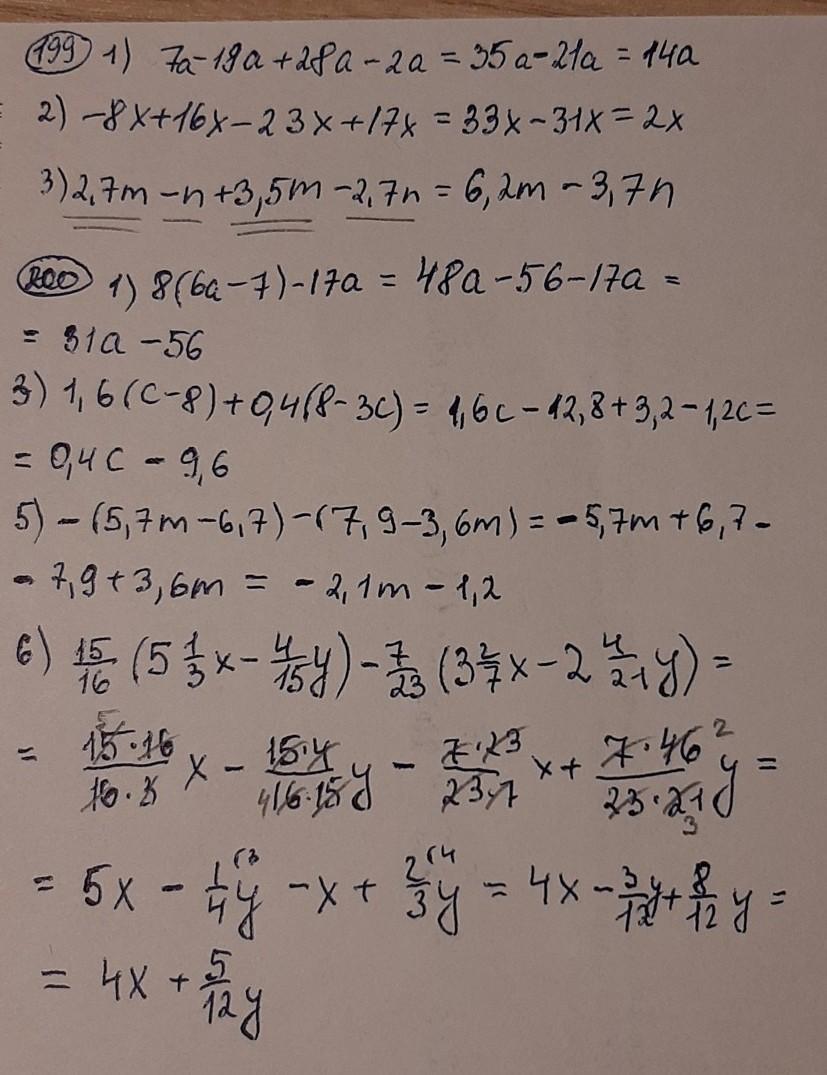 199 1) 7a-19a+28a-2a=35a-21a=14a
2) -8x+16x-23x+17x=33x-31x=2x
3) 2,7m-n+3,5m-2,7n=6,2m-3,7n
200 1) 8(6a-7)-17a=48a-56-17a=
=31a-56
3) 1,6(c-8)+0,4(8-3c)=1,6c-12,8+3,2-1,2c=
=0,4c-9,6
5) -(5,7m-6,7)-(7,9-3,6m)=-5,7m+6,7-
-7,9+3,6m=-2,1m-1,2
6) 15/16 (5 1/3 x - 4/15 y) - 7/23 (3 2/7 x - 2 4/21 y) =
= 15·16/16·3 x - 15·4/16·15 y - 7·23/23·7 x + 7·46/23·21 y =
= 5x - 1/4 y - x + 2/3 y = 4x - 3/12 y + 8/12 y =
= 4x + 5/12 y